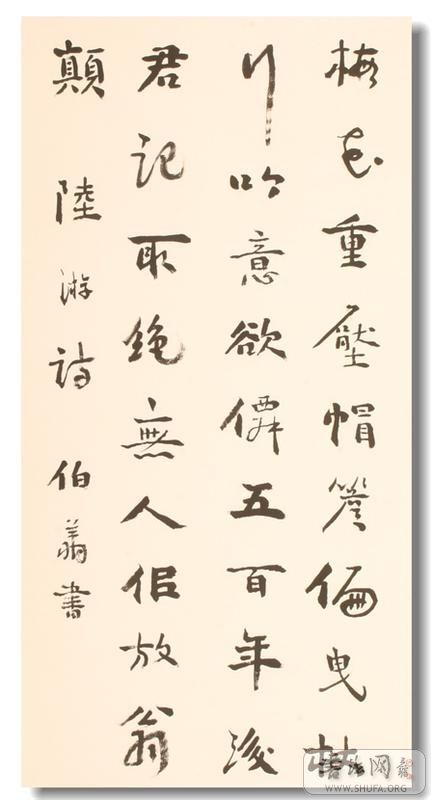 梅花重壓帽簷偏曳杖
行吟意欲僊五百年後
君記取絕無人佀放翁
顛 陸游詩 伯書
WWW.SHUFA.ORG